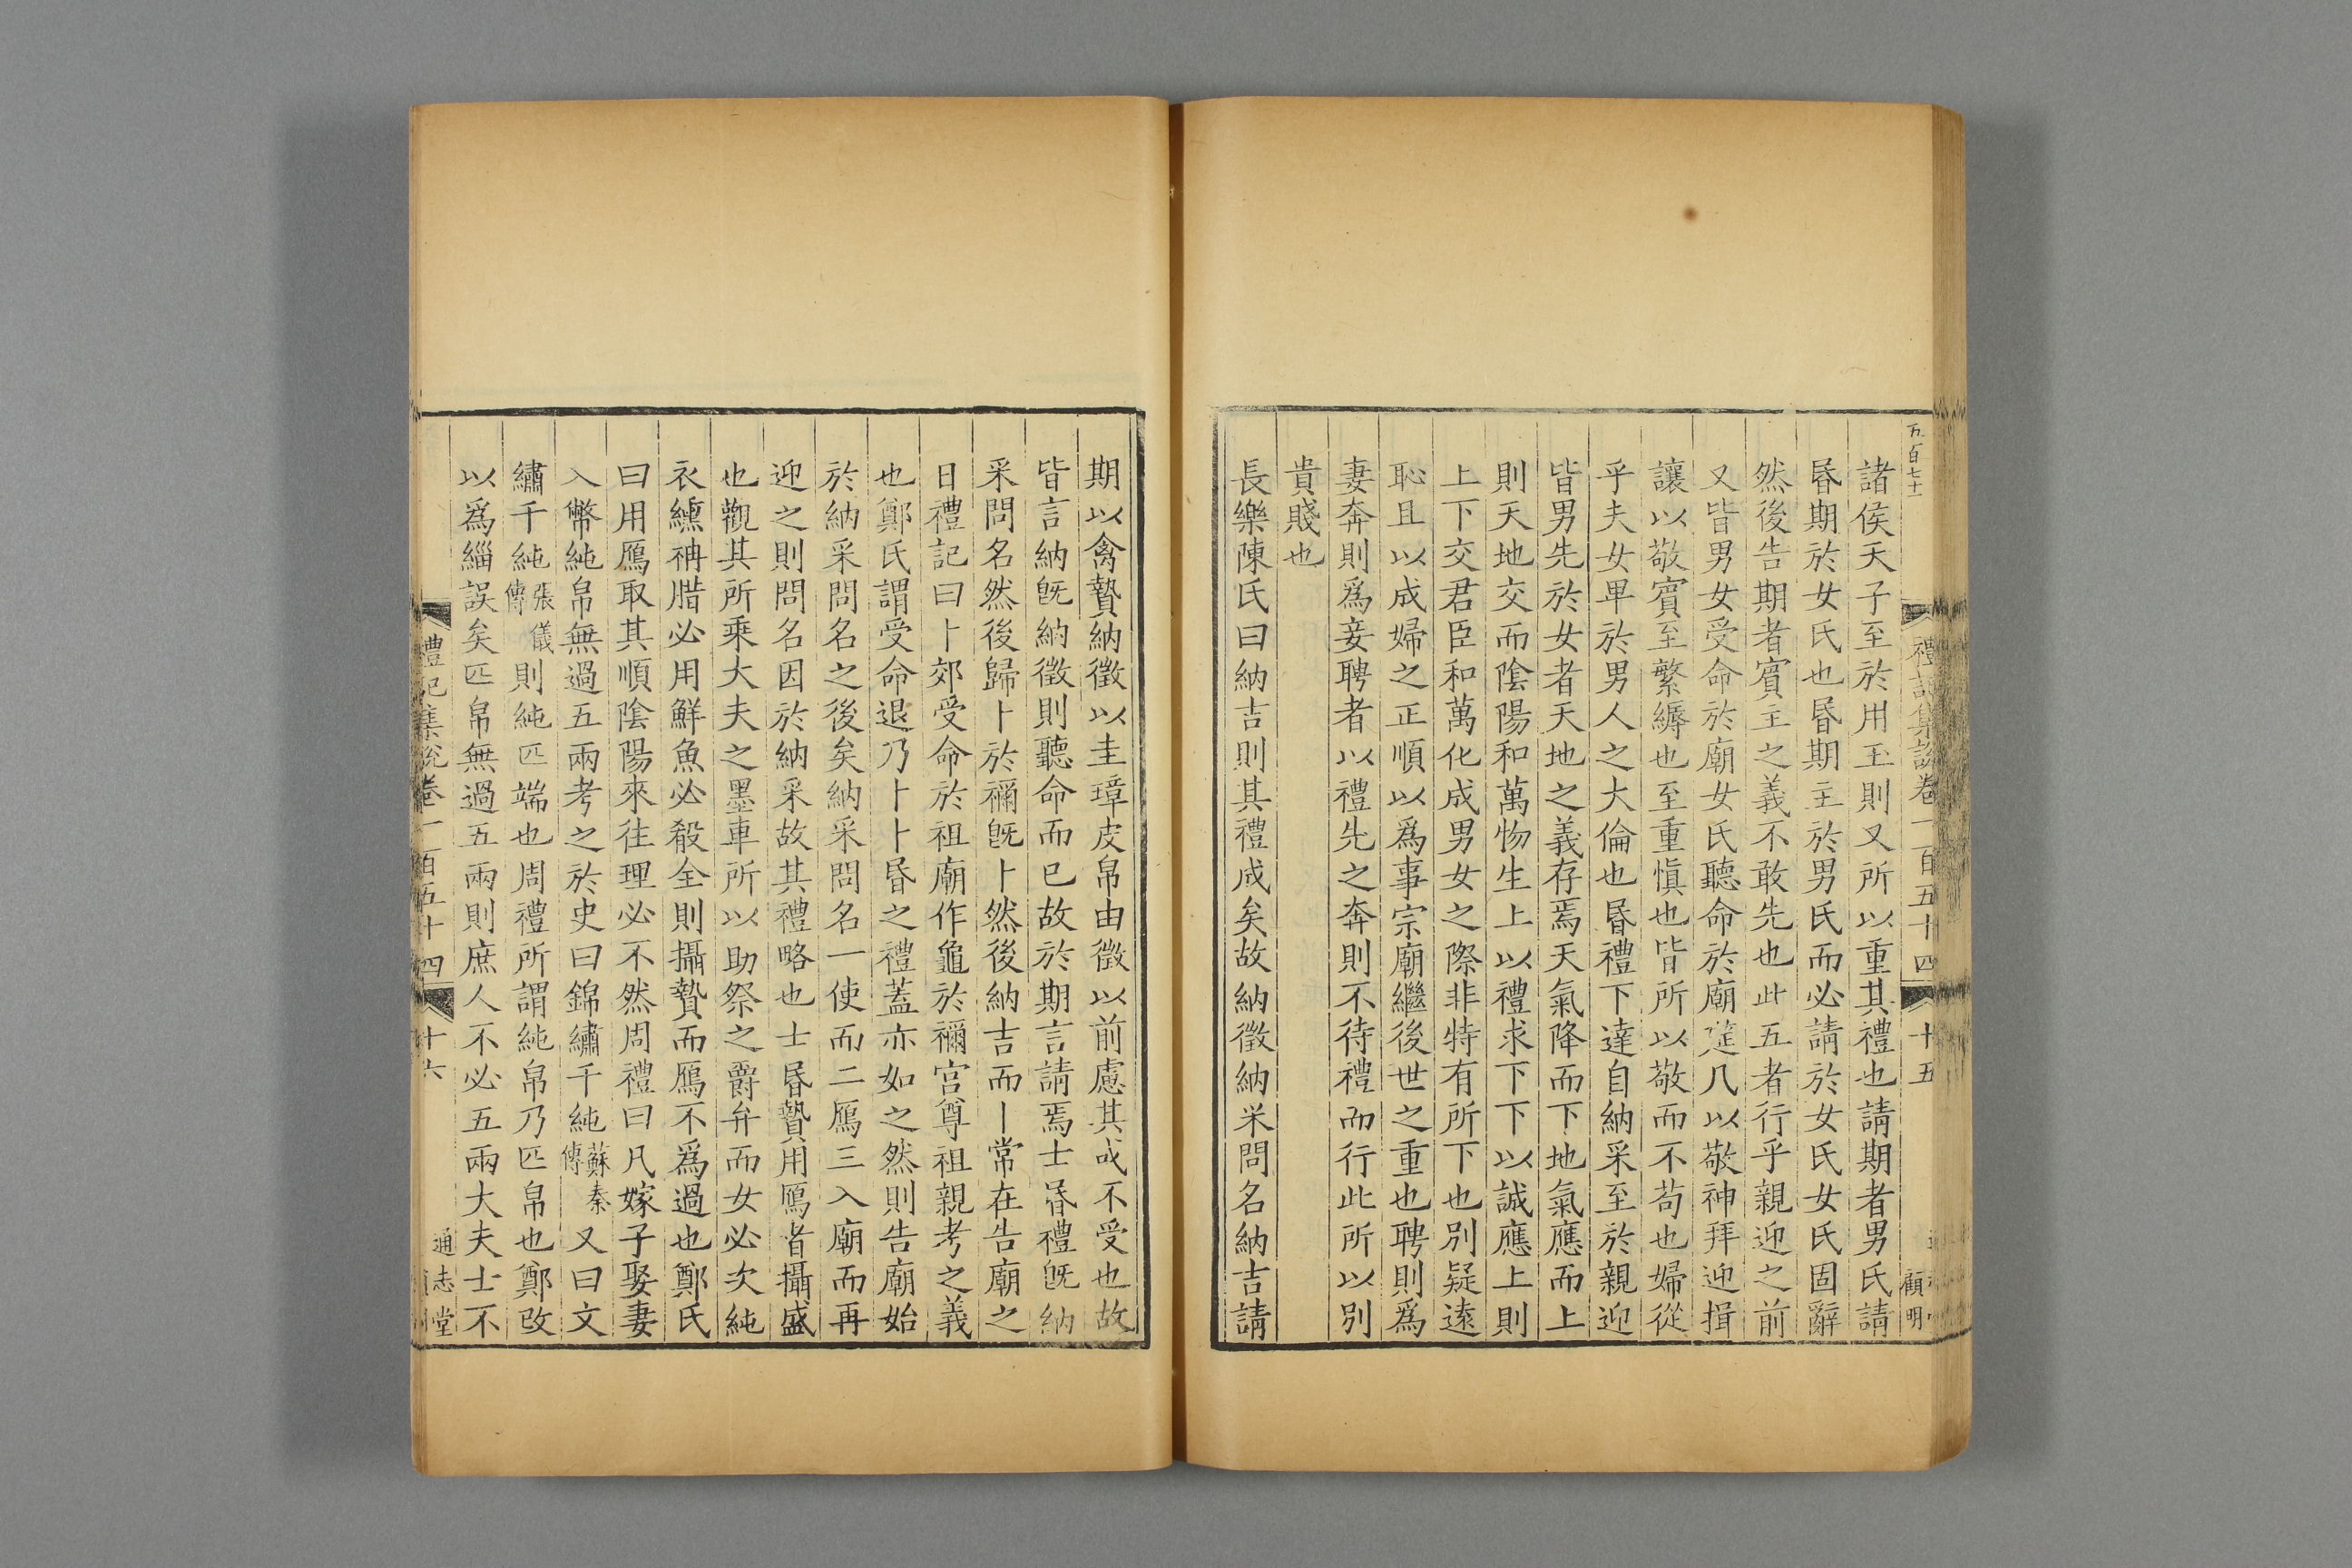 五百七十一
禮記集說卷一百五十四
十五
顧明
諸侯天子至於用玉則又所以重其禮也請期者男氏請
昬期於女氏也昬期主於男氏而必請於女氏女氏固辭
然後告期者賓主之義不敢先也此五者行乎親迎之前
又皆男女受命於廟女氏聽命於廟筵几以敬神拜迎揖
讓以敬賓至繁縟也至重愼也皆所以敬而不苟也婦從
乎夫女卑於男人之大倫也昬禮下達自納采至於親迎
皆男先於女者天地之義存焉天氣降而下地氣應而上
則天地交而隂陽和萬物生上以禮求下下以誠應上則
上下交君臣和萬化成男女之際非特有所下也別疑逺
恥且以成婦之正順以爲事宗廟繼後世之重也聘則爲
妻奔則爲妾聘者以禮先之奔則不待禮而行此所以別
貴賤也
長樂陳氏曰納吉則其禮成矣故納徵納采問名納吉請
期以禽贄納徵以圭璋皮帛由徵以前慮其或不受也故
皆言納旣納徵則聽命而已故於期言請焉士昬禮旣納
采問名然後歸卜於禰旣卜然後納吉而卜常在告廟之
日禮記曰卜郊受命於祖廟作龜於禰宫尊祖親考之義
也鄭氏謂受命退乃卜卜昬之禮蓋亦如之然則告廟始
於納采問名之後矣納采問名一使而二鴈三入廟而再
迎之則問名因於納采故其禮略也士昬贄用鴈者攝盛
也觀其所乘大夫之墨車所以助祭之爵弁而女必次純
衣纁袡腊必用鮮魚必殽全則攝贄而鴈不爲過也鄭氏
曰用鴈取其順隂陽來往理必不然周禮曰凡嫁子娶妻
入幣純帛無過五兩考之於史曰錦繡千純蘇秦傳又曰文
繡千純張儀傳則純匹端也周禮所謂純帛乃匹帛也鄭改
以爲緇誤矣匹帛無過五兩則庶人不必五兩大夫士不
禮記集說卷一百五十四
十六
通志堂